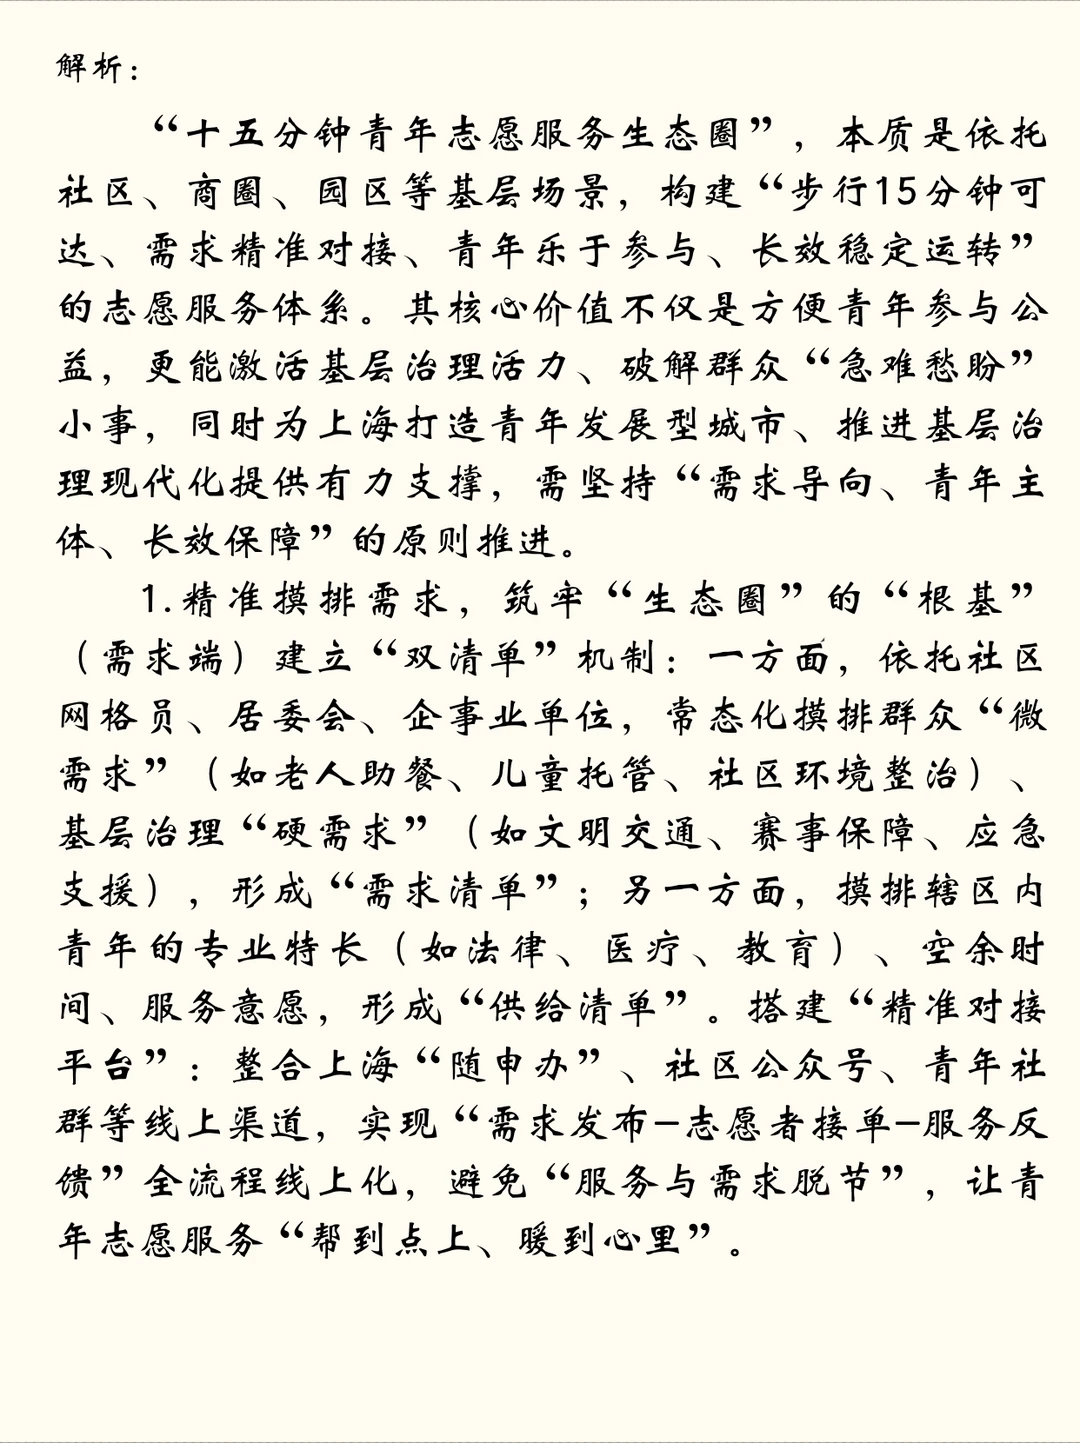 解析：
“十五分钟青年志愿服务生态圈”，本质是依托
社区、商圈、园区等基层场景，构建“步行15分钟可
达、需求精准对接、青年乐于参与、长效稳定运转”
的志愿服务体系。其核心价值不仅是方便青年参与公
益，更能激活基层治理活力、破解群众“急难愁盼”
小事，同时为上海打造青年发展型城市、推进基层治
理现代化提供有力支撑，需坚持“需求导向、青年主
体、长效保障”的原则推进。
1.精准摸排需求，筑牢“生态圈”的“根基”
（需求端）建立“双清单”机制：一方面，依托社区
网格员、居委会、企事业单位，常态化摸排群众“微
需求”（如老人助餐、儿童托管、社区环境整治）、
基层治理“硬需求”（如文明交通、赛事保障、应急
支援），形成“需求清单”；另一方面，摸排辖区内
青年的专业特长（如法律、医疗、教育）、空余时
间、服务意愿，形成“供给清单”。搭建“精准对接
平台”：整合上海“随申办”、社区公众号、青年社
群等线上渠道，实现“需求发布-志愿者接单-服务反
馈”全流程线上化，避免“服务与需求脱节”，让青
年志愿服务“帮到点上、暖到心里”。